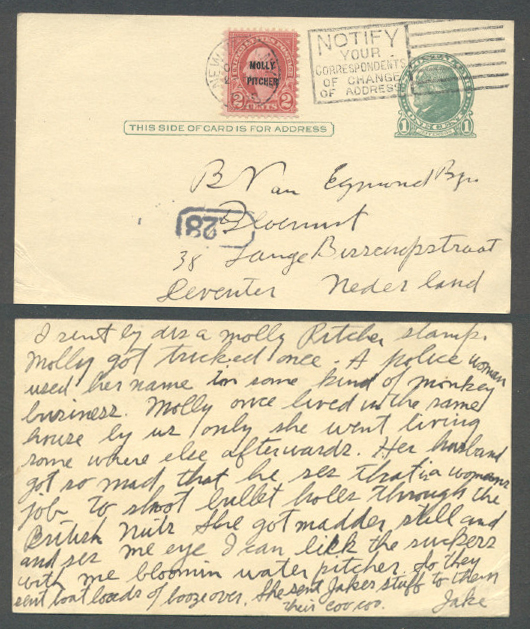 MOLLY
PITCHER
2 CENTS 2
NOTIFY
YOUR
CORRESPONDENTS
OF CHANGE
OF ADDRESS
1 ONE CENT 1
THIS SIDE OF CARD IS FOR ADDRESS
B Van Egmond Bzn
Bloemist
28
38 Lange Bisschopstraat
Deventer Nederland
I sent by dis a Molly Pitcher stamp.
Molly got tricked once. A police woman
used her name in some kind of monkey
business. Molly once lived in the same
house by us only she went living
some where else afterwards. Her husband
got so mad, that he ses that is a womans
job to shoot bullet holes through the
British Nuts She got madder still and
and ses me eye I can lick the suckers
with me bloomin water pitcher. So they
sent boat loads of booze over. She sent Jakes stuff to them
their coo coo. Jake